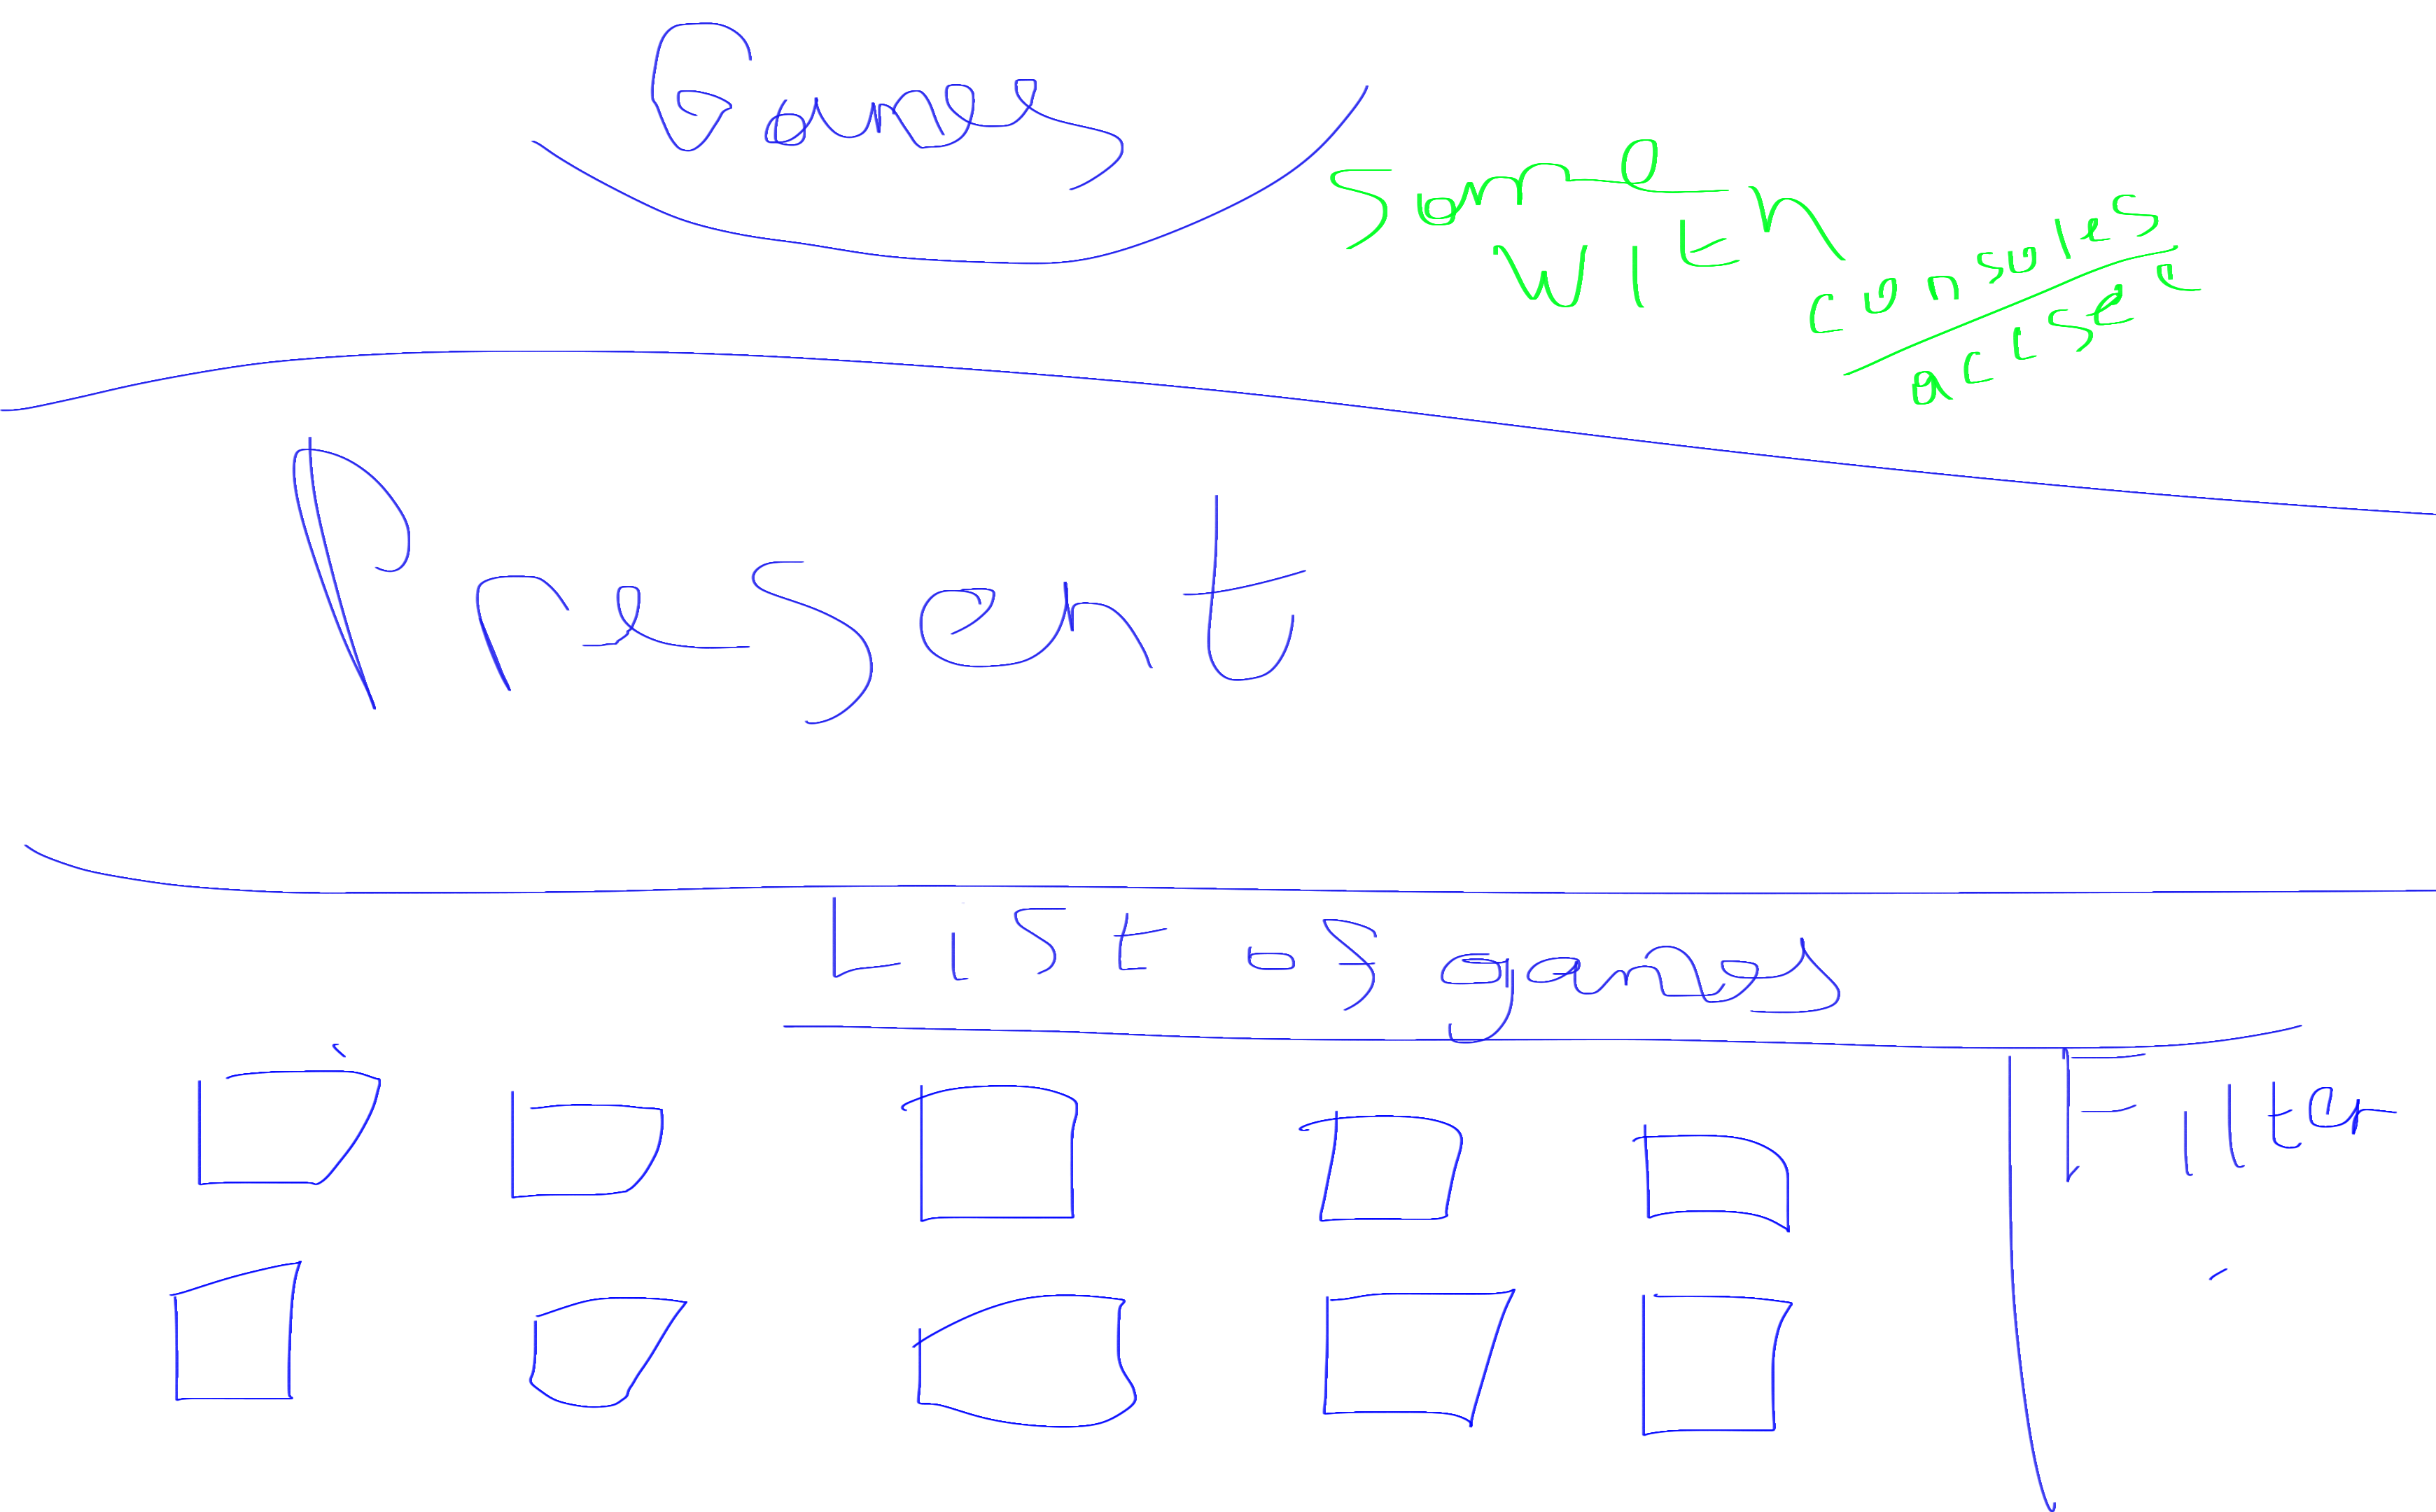 Games
Same
With
consoles
acc
Present
List of games
Filter